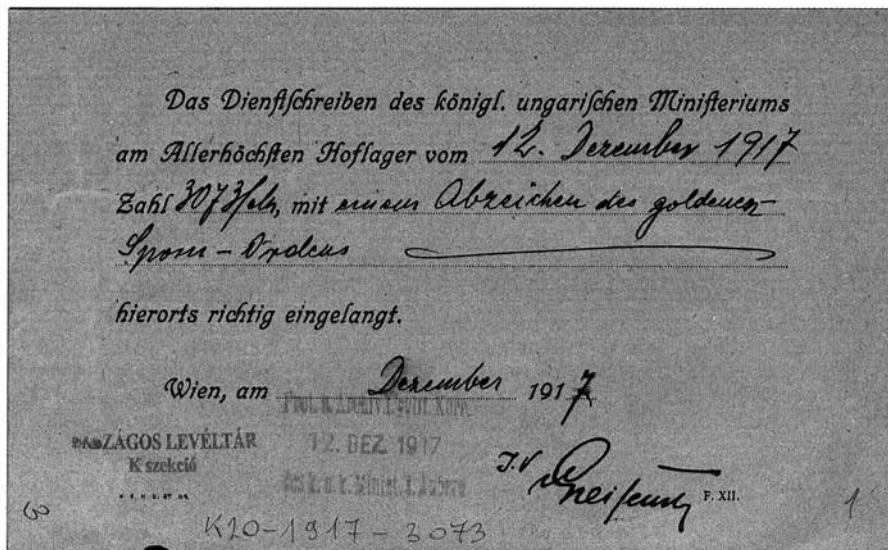 Das Dienstschreiben des königl. ungarischen Ministeriums
am Allerhöchsten Hoflager vom 12. Dezember 1917
Zahl 3073/eln, mit einem Abzeichen des goldenen
Sporn-Ordens
hierorts richtig eingelangt.
Wien, am Dezember 1917
Prot. u. Archiv
12. DEZ. 1917
des k. u. k. Minist. d. Äußern
ORSZÁGOS LEVÉLTÁR
K szekció
I.V.
F. XII.
K20-1917-3073
3
1